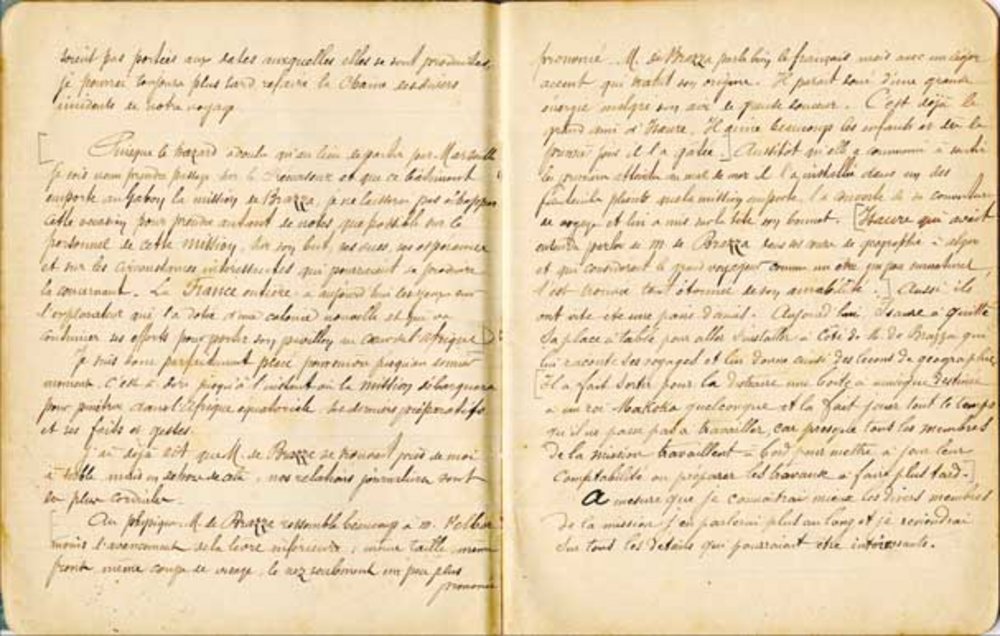 soient pas portées aux dates auxquelles elles se sont produites,
je pourrai toujours plus tard refaire la divers
incidents de notre voyage
[ Puisque le hazard a voulu qu'au lieu de partir par Marseille
je sois venu prendre passage sur le et que ce bâtiment
emporte au Gabon la mission de Brazza, je ne laisserai pas échapper
cette occasion pour prendre autant de notes que possible sur le
personnel de cette mission, sur son but, ses vues, ses espérances
et sur les circonstances intéressantes qui pourraient se produire
la concernant. La France entière a aujourd'hui les yeux sur
l'explorateur qui l'a dotée d'une colonie nouvelle et qui va
continuer ses efforts pour porter son pavillon au cœur de l'Afrique
Je suis donc parfaitement placé pour jusqu'au dernier
moment, c'est à dire jusqu'à l'instant où la mission débarquera
pour pénétrer dans l'Afrique équatoriale, ses derniers préparatifs
et ses faits et gestes.
J'ai déjà dit que M. de Brazza se trouvait près de moi
à table mais en dehors de cela, nos relations journalières sont
des plus cordiales.
Au physique M. de Brazza ressemble beaucoup à M.
moins l'avancement de la lèvre inférieure, même taille, même
front même coupe de visage, le nez seulement un peu plus
prononcé
prononcé. M. de Brazza parle bien le français mais avec un léger
accent qui trahit son origine. Il parait doué d'une grande
énergie malgré son air de grande douceur. C'est déjà le
grand ami d'Isaure. Il aime beaucoup les enfants et dès le
premier jour il l'a gâtée.] Aussitôt qu'elle a commencé à sentir
les premières atteintes du mal de mer il l'a installée dans un des
fauteuils pliants que la mission emporte, l'a couverte de sa couverture
de voyage et lui a mis sur la tête son bonnet. [Isaure qui avait
entendu parler de M. de Brazza dans ses cours de géographie à Alger
et qui considérait le grand voyageur comme un être quasi surnaturel,
s'est trouvée tout étonnée de son amabilité.] Aussi ils
ont vite été une paire d'amis. Aujourd'hui Isaure a quitté
sa place à table pour aller s'installer à côté de M. de Brazza qui
lui raconte ses voyages et lui donne aussi des leçons de géographie
[Il a fait sortir pour la distraire une boîte à musique destinée
à un roi Makoko quelconque et la fait jouer tout le temps
qu'il ne passe pas à travailler, car presque tous les membres
de la mission travaillent à bord pour mettre à jour leur
comptabilité ou préparer les travaux à faire plus tard.]
A mesure que je connaîtrai mieux les divers membres
de la mission j'en parlerai plus au long et je reviendrai
sur tous les détails qui pourraient être intéressants.